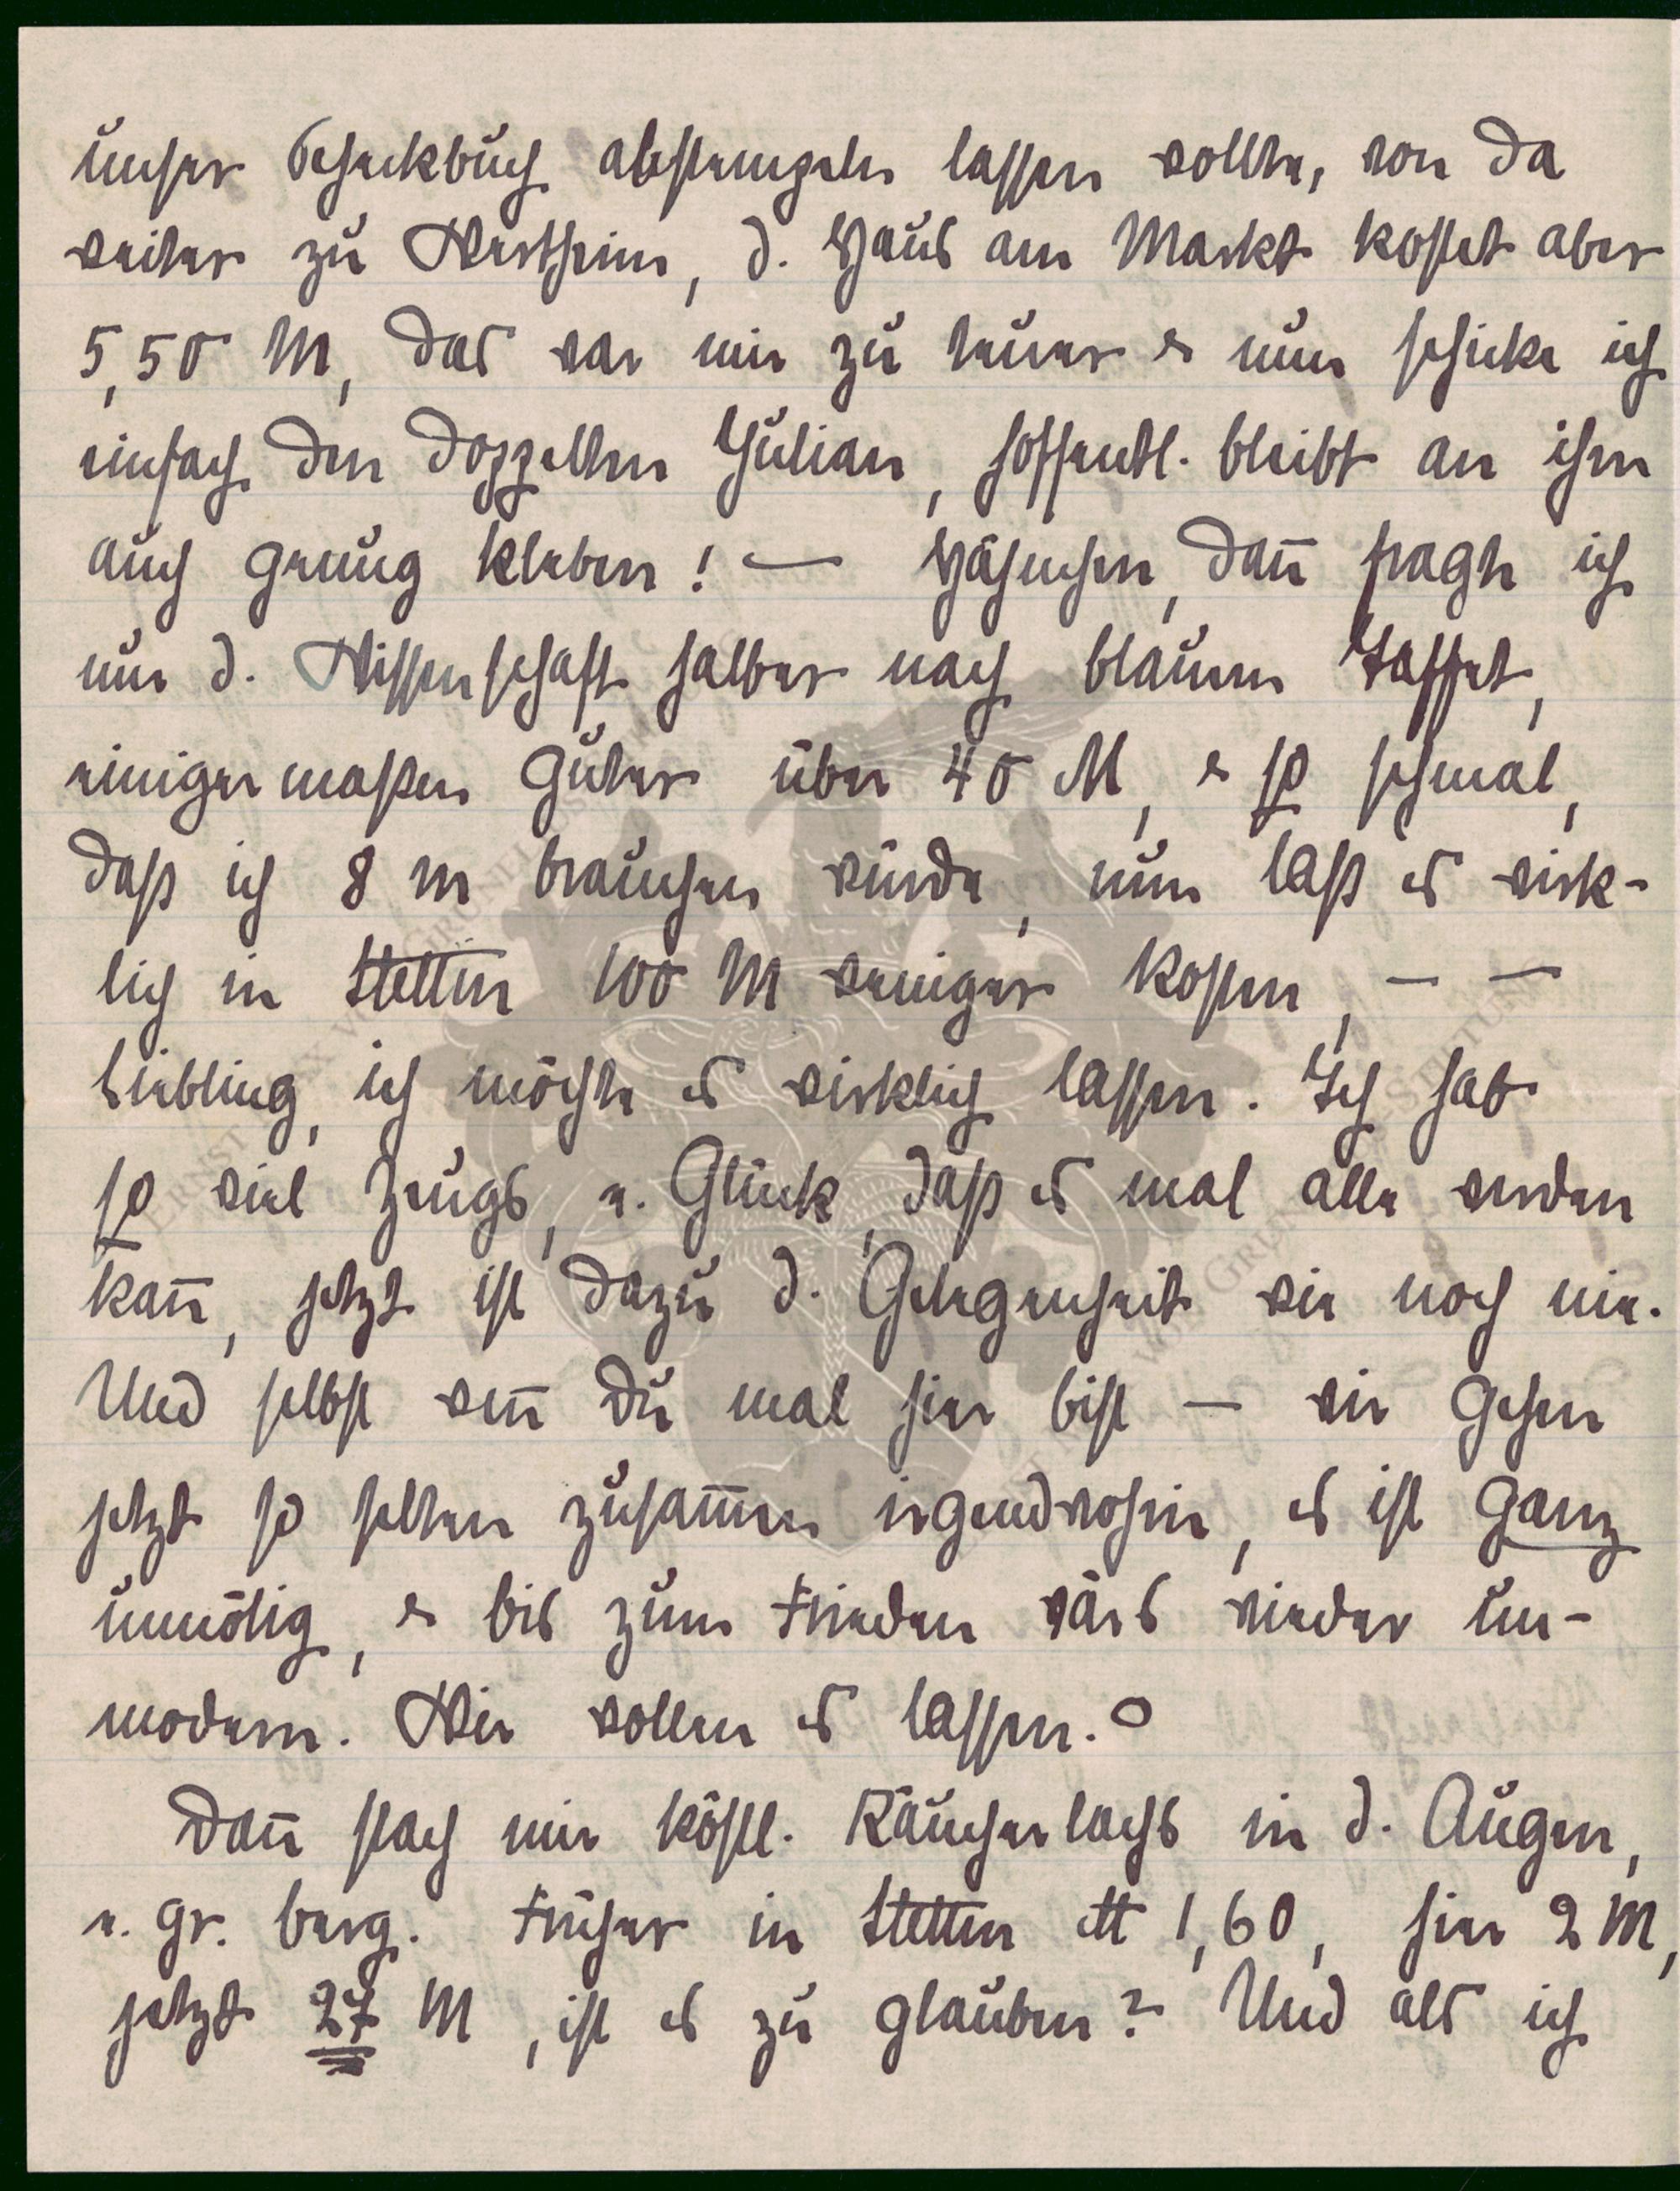 unser Scheckbuch abstempeln lassen wollte, von da
weiter zu Wertheim, d. Haus am Markt kostet aber
5,50 M, das war mir zu teuer & nun schicke ich
einfach den doppelten Julian, hoffentl. bleibt an ihm
auch genug kleben! — Häschen, dann fragte ich
nur d. Wissenschaft halber nach blauem Taffet,
einigermaßen guter über 40 M, & so schmal,
daß ich 8 m brauchen würde, nun laß es wirk-
lich in Stettin 100 M weniger kosten, — —
Liebling, ich möchte es wirklich lassen. Ich hab
so viel Zeugs, e. Glück, daß es mal alle werden
kann, jetzt ist dazu d. Gelegenheit wie noch nie.
Und selbst wenn Du mal hier bist — wir gehen
jetzt so selten zusammen irgendwohin, es ist ganz
unnötig, & bis zum Frieden wärs wieder un-
modern. Wir wollen es lassen.
Dann stach mir köstl. Räucherlachs in d. Augen,
e. gr. Berg. Früher in Stettin 1,60, hier 2 M,
jetzt 27 M, ist es zu glauben? Und als ich